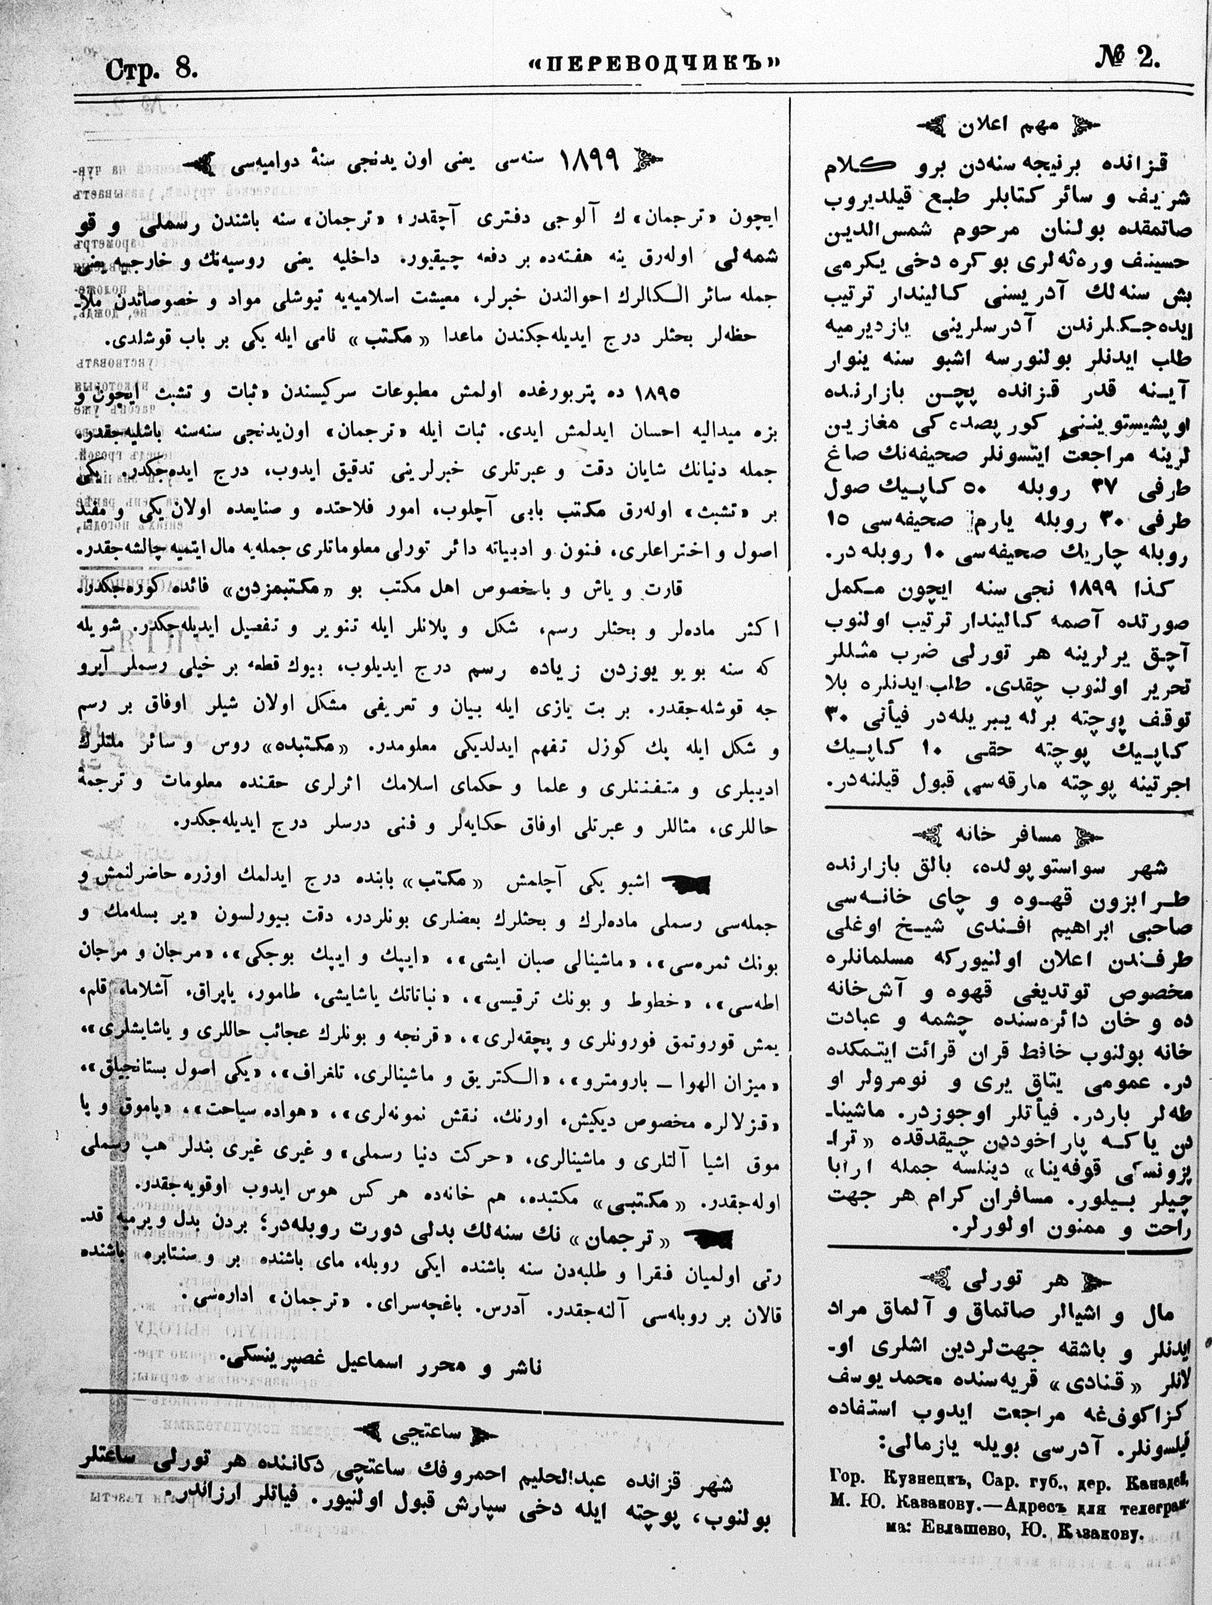 Стр. 8.
«ПЕРЕВОДЧИКЪ»
№ 2.
مهم اعلان
قزانده برنیجه سنه‌دن برو کلام
شریف و سائر کتابلر طبع قیلدیروب
صاتمقده بولنان مرحوم شمس‌الدین
حسینف ورثه‌لری بوکره دخی یکرمی
بش سنه‌لك آدریسنی کالیندار ترتیب
ایده‌جکلرندن آدرسلرینی یازدیرمیه
طلب ایدنلر بولنورسه اشبو سنه ینوار
آینه قدر قزانده پچن بازارنده
کی مغازین
لرینه مراجعت ایتسونلر صحیفه‌نك صاغ
طرفی ۳۷ روبله ۵۰ کاپیك صول
طرفی ۳۰ روبله یارم صحیفه‌سی ۱۵
روبله چاریك صحیفه‌سی ۱۰ روبله‌در.
کذا ۱۸۹۹ نجی سنه ایچون مکمل
صورتده آصمه کالیندار ترتیب اولنوب
آچق یرلرینه هر تورلی ضرب مثللر
تحریر اولنوب چقدی. طلب ایدنلره بلا
توقف پوچته برله ییریله‌در فیأنی ۳۰
کاپیك پوچته حقی ۱۰ کاپیك
اجرتینه پوچته مارقه‌سی قبول قیلنه‌در.
مسافر خانه
شهر سواستوپولده، بالق بازارنده
طرابزون قهوه و چای خانه‌سی
صاحبی ابراهیم افندی شیخ اوغلی
طرفندن اعلان اولنیورکه مسلمانلره
مخصوص توتدیغی قهوه و آش‌خانه
ده و خان دائره‌سنده چشمه و عبادت
خانه بولنوب حافظ قران قرائت ایتمکده
در. عمومی یتاق یری و نومرولر او
طه‌لر باردر. فیأتلر اوجوزدر. ماشینا-
دن یاکه پاراخوددن چیقدقده «قرا-
پزونسکی قوفه‌ینا» دینلسه جمله ارابا
چیلر بیلور. مسافران کرام هر جهت
راحت و ممنون اولورلر.
هر تورلی
مال و اشیالر صاتماق و آلماق مراد
ایدنلر و باشقه جهت‌لردین اشلری او-
لانلر «قنادی» قریه‌سنده محمد یوسف
کزاکوف‌غه مراجعت ایدوب استفاده
قیلسونلر. آدرسی بویله یازمالی:
Гор. Кузнецкъ, Сар. губ., дер. Канадей,
М. Ю. Казакову.—Адресъ для телеграм-
ма: Евлашево, Ю. Казакову.
۱۸۹۹ سنه‌سی یعنی اون یدنجی سنهٔ دوامیه‌سی
ایچون «ترجمان» ك آلوجی دفتری آچقدر؛ «ترجمان» سنه باشندن رسملی و قو
شمه‌لی اوله‌رق ینه هفته‌ده بر دفعه چیقیور. داخلیه یعنی روسیه‌نك و خارجیه یعنی
جمله سائر الکالرك احوالندن خبرلر، معیشت اسلامیه‌یه تیوشلی مواد و خصوصاتدن ملا-
حظه‌لر بحثلر درج ایدیله‌جکندن ماعدا «مکتب» نامی ایله یکی بر باب قوشلدی.
۱۸۹۵ ده پتربورغده اولمش مطبوعات سرکیسندن «ثبات و تشبث ایچون» و
بزه میدالیه احسان ایدلمش ایدی. ثبات ایله «ترجمان» اون‌یدنجی سنه‌سنه باشلیه‌جقدر.
جمله دنیانك شایان دقت و عبرتلری خبرلرینی تدقیق ایدوب، درج ایده‌جکدر. یکی
بر «تشبث» اوله‌رق مکتب بابی آچلوب، امور فلاحتده و صنایعده اولان یکی و مفید
اصول و اختراعلری، فنون و ادبیاته دائر تورلی معلوماتلری جمله‌یه مال ایتمیه چالشه‌جقدر.
قارت و یاش و باخصوص اهل مکتب بو «مکتبمزدن» فائده کوره‌جکدر.
اکثر ماده‌لر و بحثلر رسم، شکل و پلانلر ایله تنویر و تفصیل ایدیله‌جکدر. شویله
که سنه بویو یوزدن زیاده رسم درج ایدیلوب، بیوك قطعه بر خیلی رسملر آیرو
جه قوشله‌جقدر. بر بت یازی ایله بیان و تعریفی مشکل اولان شیلر اوفاق بر رسم
و شکل ایله پك کوزل تفهم ایدلدیکی معلومدر. «مکتبده» روس و سائر ملتلرك
ادیبلری و متفننلری و علما و حکمای اسلامك اثرلری حقنده معلومات و ترجمهٔ
حاللری، مثاللر و عبرتلی اوفاق حکایه‌لر و فنی درسلر درج ایدیله‌جکدر.
اشبو یکی آچلمش «مکتب» بابنده درج ایدلمك اوزره حاضرلنمش و
جمله‌سی رسملی ماده‌لرك و بحثلرك بعضلری بونلردر، دقت بیورلسون «یر بسله‌مك و
بونك ثمره‌سی»، «ماشینالی صبان ایشی»، «ایپك و ایپك بوجکی»، «مرجان و مرجان
اطه‌سی»، «خطوط و بونك ترقیسی»، «نباتاتك یاشایشی، طامور، یاپراق، آشلاما، قلم،
یمش قوروتمق فورونلری و پچقه‌لری»، «قرنجه و بونلرك عجائب حاللری و یاشایشلری»،
«میزان الهوا – بارومترو»، «الکتریق و ماشینالری، تلغراف»، «یکی اصول بستانجیلق»،
«قزلالره مخصوص دیکیش، اورنك، نقش نمونه‌لری»، «هواده سیاحت»، «پاموق و پا
موق اشیا آلتلری و ماشینالری، «حرکت دنیا رسملی» و غیری غیری بندلر هپ رسملی
اوله‌جقدر. «مکتبی» مکتبده، هم خانه‌ده هر کس هوس ایدوب اوقویه‌جقدر.
«ترجمان» نك سنه‌لك بدلی دورت روبله‌در؛ بردن بدل ویرمیه قد-
رتی اولمیان فقرا و طلبه‌دن سنه باشنده ایکی روبله، مای باشنده بر و سنتابره باشنده
قالان بر روبله‌سی آلنه‌جقدر. آدرس. باغچه‌سرای. «ترجمان» اداره‌سی.
ناشر و محرر اسماعیل غصپرینسکی.
ساعتچی
شهر قزانده عبدالحلیم احمروفك ساعتچی دکاننده هر تورلی ساعتلر
بولنوب، پوچته ایله دخی سپارش قبول اولنیور. فیاتلر ارزاندر.